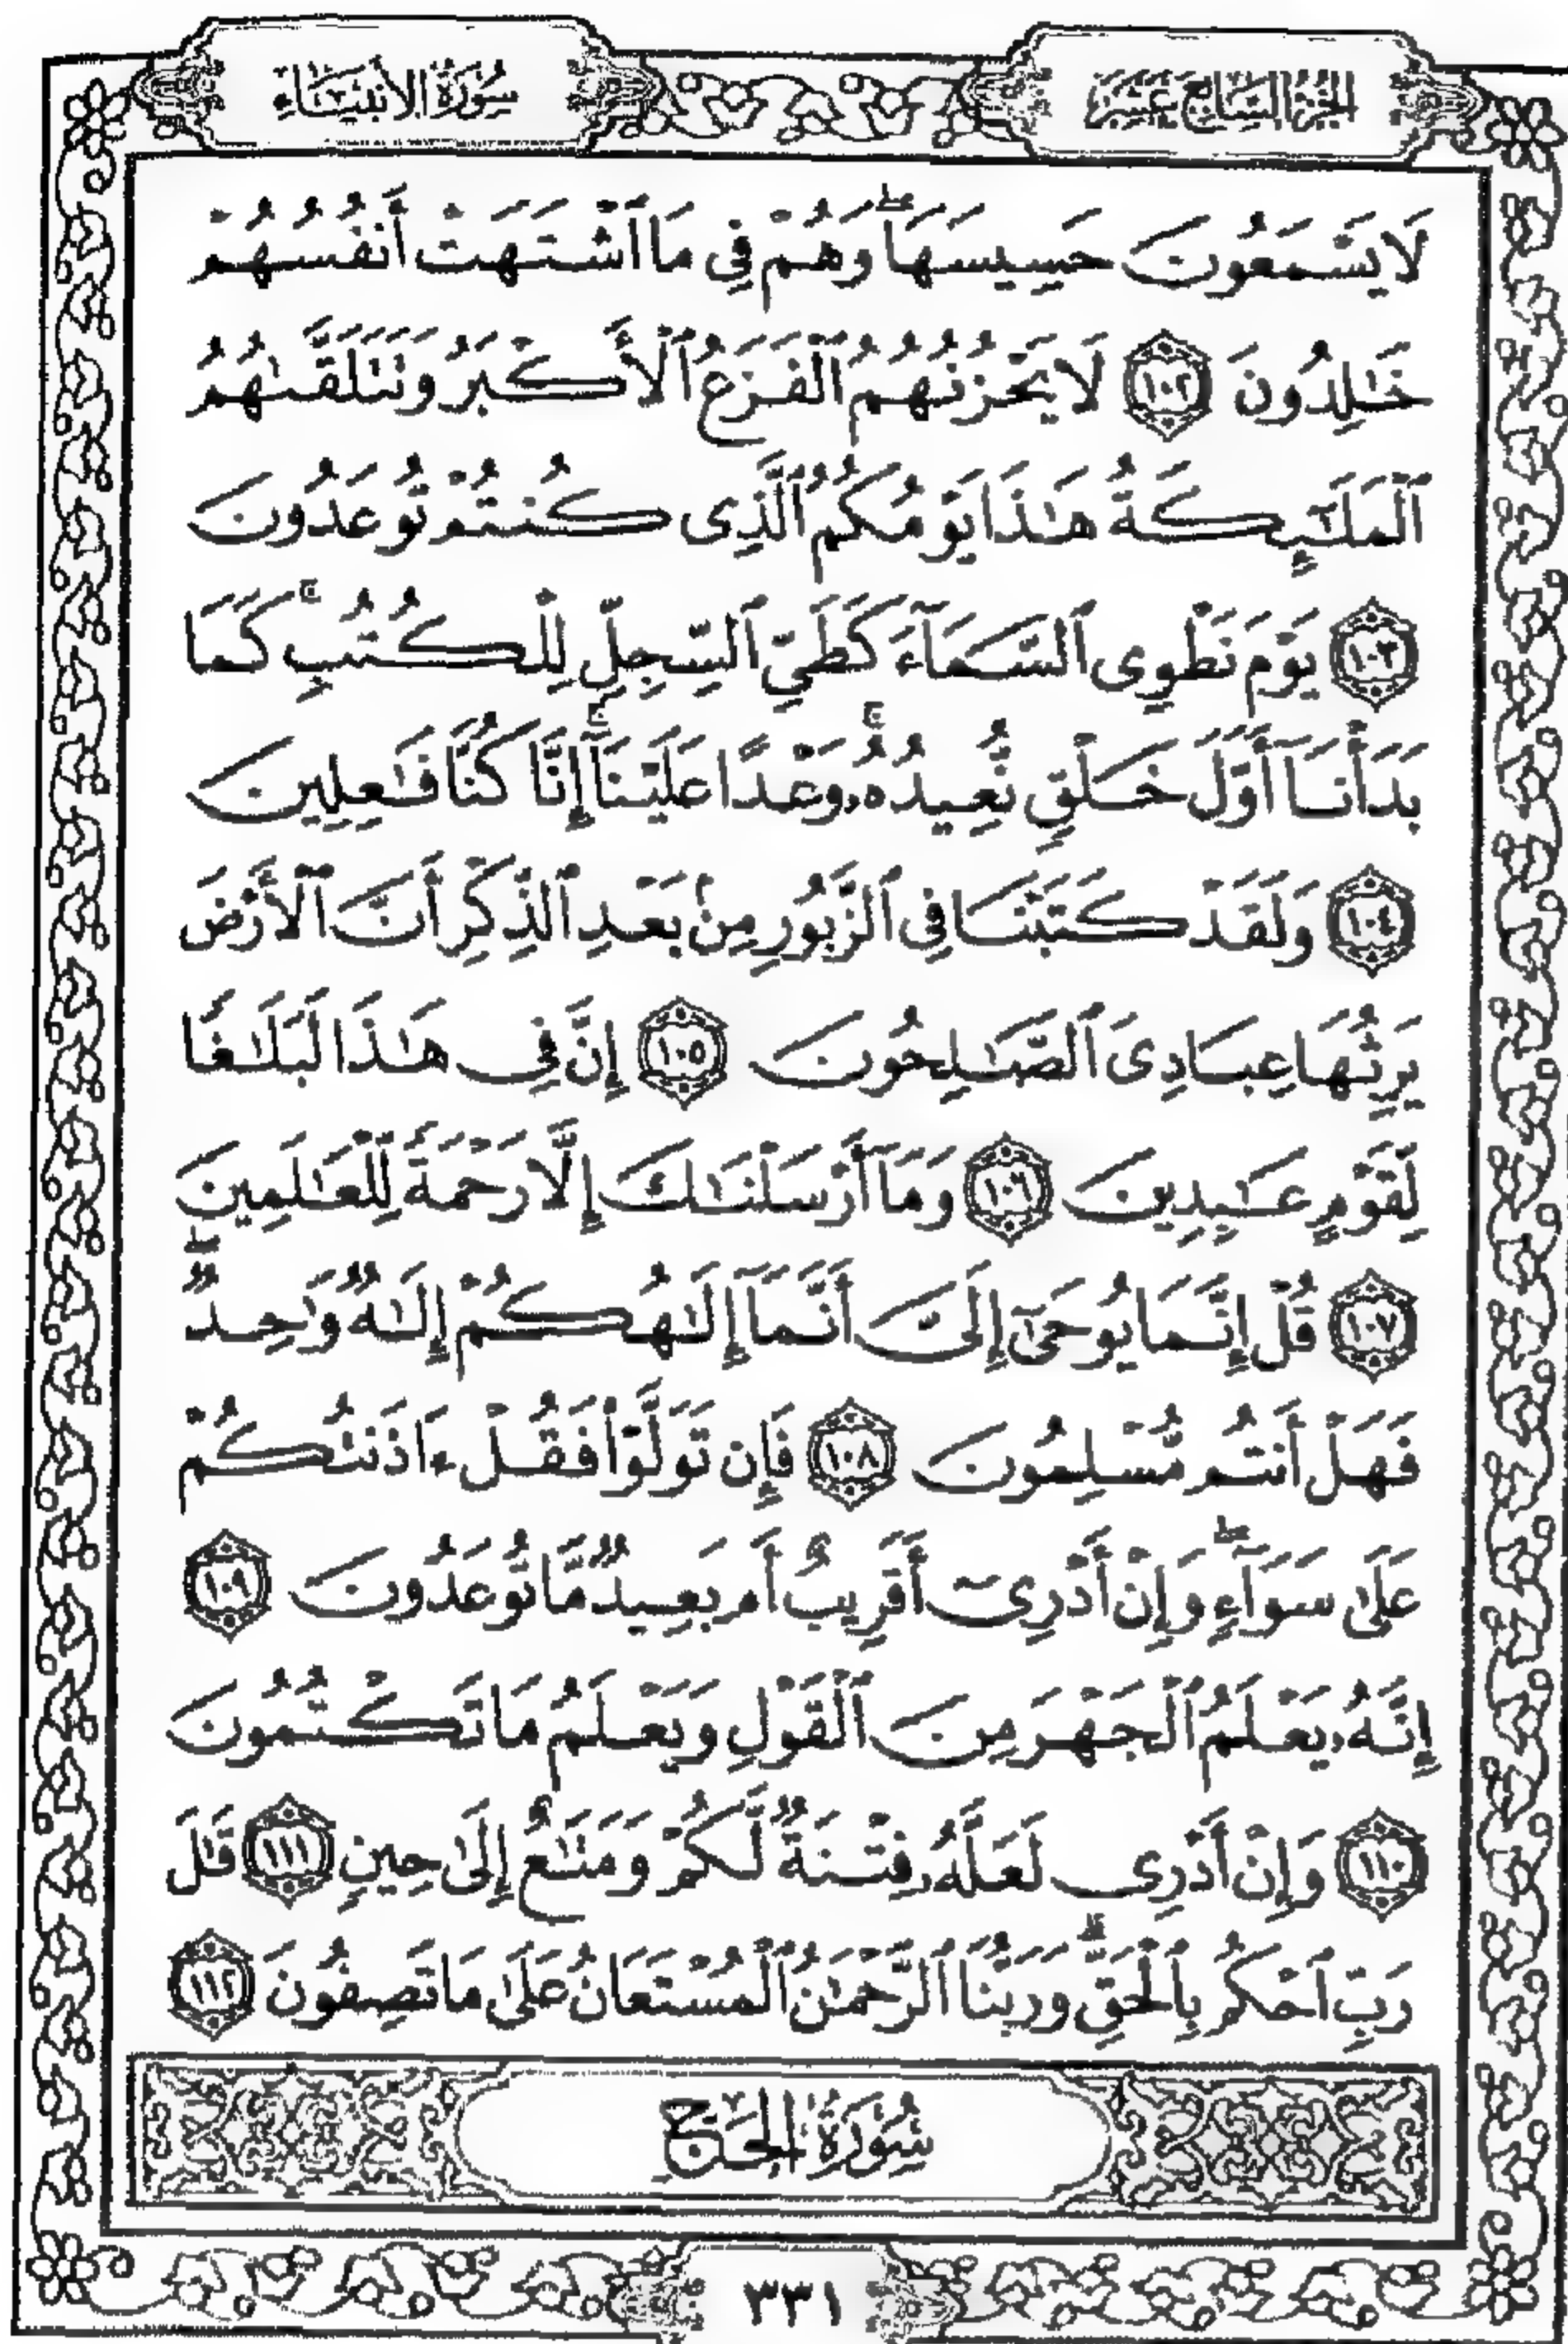 الجزء السابع عشر
سورة الأنبياء
لَا يَسْمَعُونَ حَسِيسَهَا ۖ وَهُمْ فِي مَا ٱشْتَهَتْ أَنفُسُهُمْ
خَٰلِدُونَ ١٠٢ لَا يَحْزُنُهُمُ ٱلْفَزَعُ ٱلْأَكْبَرُ وَتَتَلَقَّىٰهُمُ
ٱلْمَلَٰٓئِكَةُ هَٰذَا يَوْمُكُمُ ٱلَّذِى كُنتُمْ تُوعَدُونَ
١٠٣ يَوْمَ نَطْوِى ٱلسَّمَآءَ كَطَىِّ ٱلسِّجِلِّ لِلْكُتُبِ ۚ كَمَا
بَدَأْنَآ أَوَّلَ خَلْقٍ نُّعِيدُهُۥ ۚ وَعْدًا عَلَيْنَآ ۚ إِنَّا كُنَّا فَٰعِلِينَ
١٠٤ وَلَقَدْ كَتَبْنَا فِى ٱلزَّبُورِ مِنۢ بَعْدِ ٱلذِّكْرِ أَنَّ ٱلْأَرْضَ
يَرِثُهَا عِبَادِىَ ٱلصَّٰلِحُونَ ١٠٥ إِنَّ فِى هَٰذَا لَبَلَٰغًا
لِّقَوْمٍ عَٰبِدِينَ ١٠٦ وَمَآ أَرْسَلْنَٰكَ إِلَّا رَحْمَةً لِّلْعَٰلَمِينَ
١٠٧ قُلْ إِنَّمَا يُوحَىٰٓ إِلَىَّ أَنَّمَآ إِلَٰهُكُمْ إِلَٰهٌ وَٰحِدٌ ۖ
فَهَلْ أَنتُم مُّسْلِمُونَ ١٠٨ فَإِن تَوَلَّوْا۟ فَقُلْ ءَاذَنتُكُمْ
عَلَىٰ سَوَآءٍ ۖ وَإِنْ أَدْرِىٓ أَقَرِيبٌ أَم بَعِيدٌ مَّا تُوعَدُونَ ١٠٩
إِنَّهُۥ يَعْلَمُ ٱلْجَهْرَ مِنَ ٱلْقَوْلِ وَيَعْلَمُ مَا تَكْتُمُونَ
١١٠ وَإِنْ أَدْرِى لَعَلَّهُۥ فِتْنَةٌ لَّكُمْ وَمَتَٰعٌ إِلَىٰ حِينٍ ١١١ قَٰلَ
رَبِّ ٱحْكُم بِٱلْحَقِّ ۗ وَرَبُّنَا ٱلرَّحْمَٰنُ ٱلْمُسْتَعَانُ عَلَىٰ مَا تَصِفُونَ ١١٢
سُورَةُ الحَجّ
٣٣١